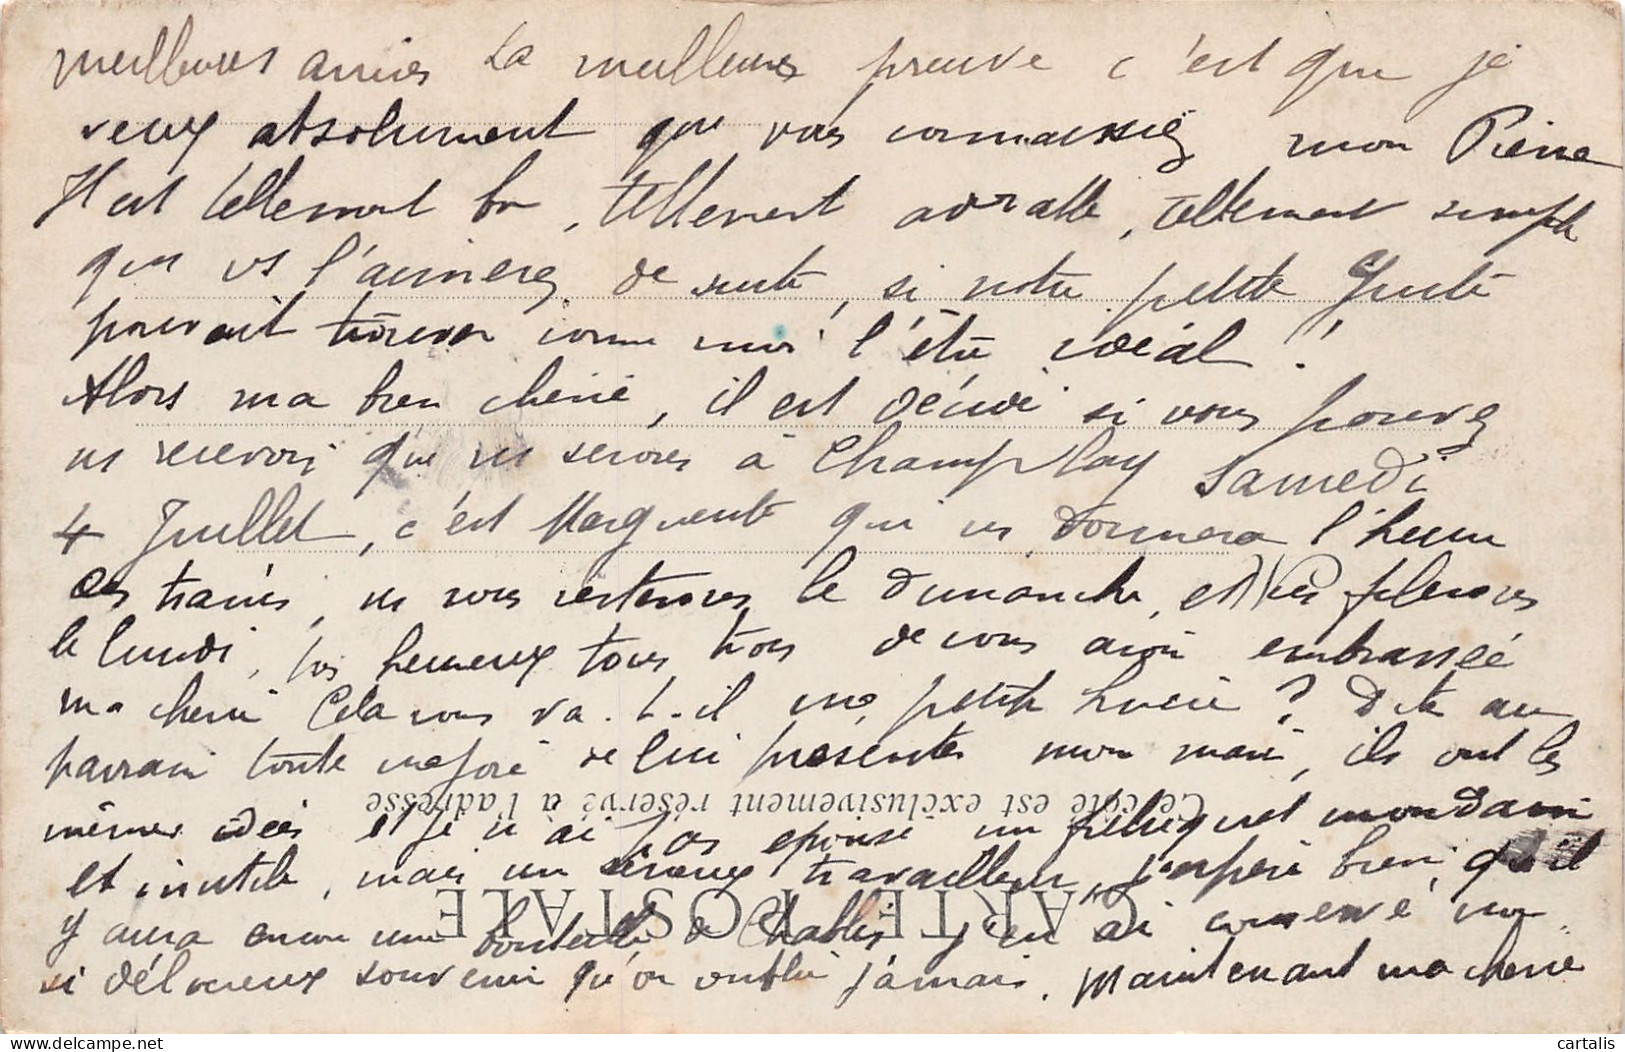 meilleures amies la meilleure preuve c'est que je
veux absolument que vous connaissiez mon Pierre
Il est tellement bon, tellement adorable, tellement simple
que vs l'aimerez de suite, si notre petite
pouvait trouver comme moi l'être idéal !
Alors ma bien chérie, il est décidé si vous pouvez
ns recevoir que ns serons à Champlay Samedi
4 Juillet, c'est Marguerite qui vs donnera l'heure
des trains, ns vous resterons le dimanche, et
le lundi, très heureux tous trois de vous avoir embrassée
ma chérie Cela vous va-t-il ma petite Lucie ? Dite au
parrain toute ma joie de lui présenter mon mari, ils ont les
Ce côté est exclusivement réservé à l'adresse
mêmes idées et je n'ai pas épousé un freluquet mondain
et inutile, mais un sérieux travailleur, j'espère bien qu'il
CARTE POSTALE
y aura encore une bouteille de Chablis j'en ai conservé un
si délicieux souvenir qu'on oublie jamais. Maintenant ma chérie
delcampe.net
cartalis